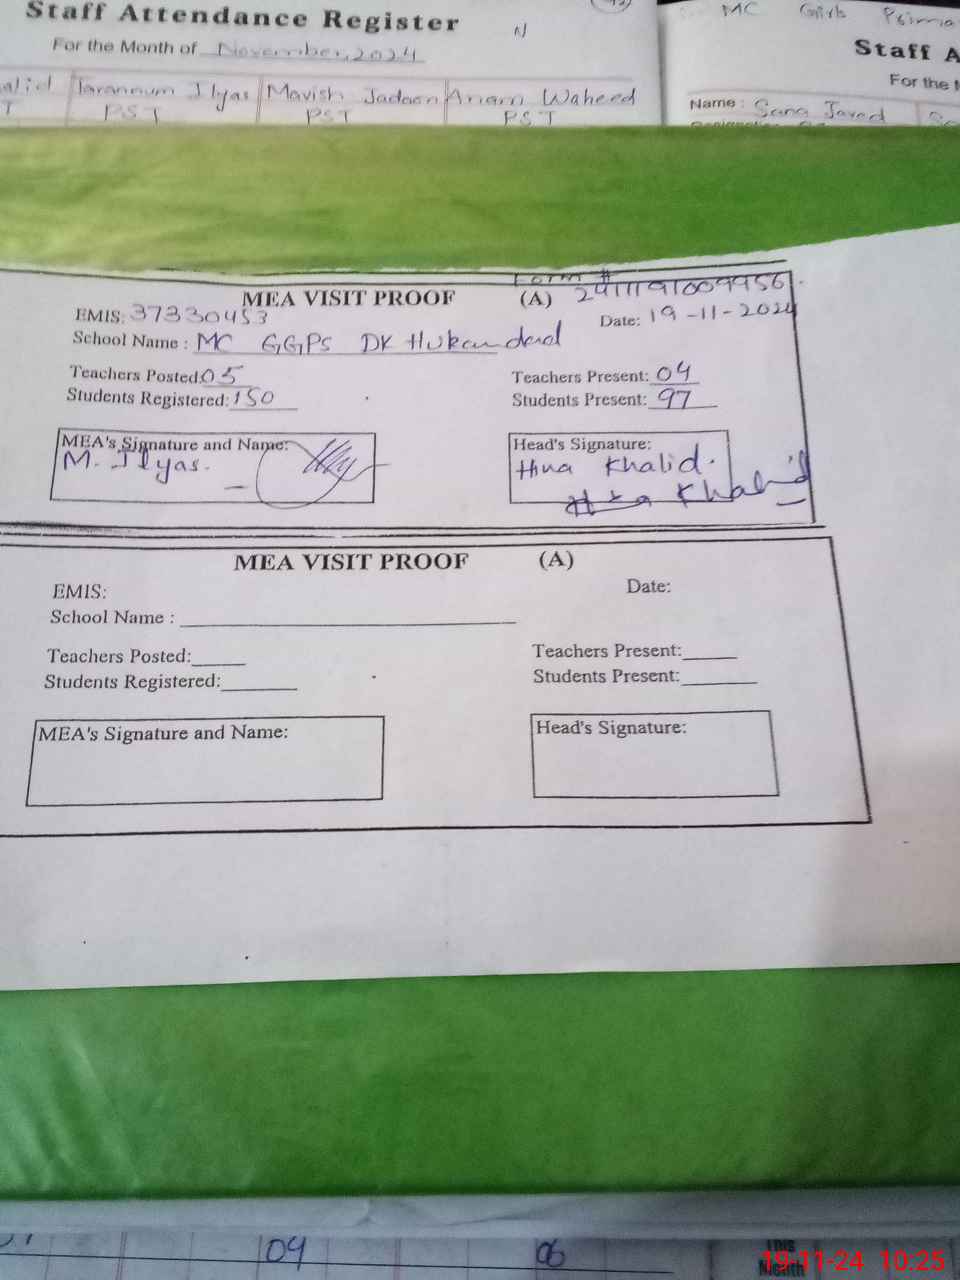 Staff Attendance Register
For the Month of November, 2024
alid Tarannum Ilyas Mavish Jadoon Anam Waheed
T PST PST PST
MC Girls Prima
Staff A
For the M
Name : Sana Javed
Form #
MEA VISIT PROOF (A)
EMIS: 37330453 Date: 19-11-2024
School Name : MC GGPS DK Hukamdad
Teachers Posted: 05 Teachers Present: 04
Students Registered: 150 Students Present: 97
MEA's Signature and Name: Head's Signature:
M. Ilyas. Hina Khalid.
Hina Khalid
MEA VISIT PROOF (A)
EMIS: Date:
School Name :
Teachers Posted: Teachers Present:
Students Registered: Students Present:
MEA's Signature and Name: Head's Signature:
04 06 This
Month
19-11-24 10:25